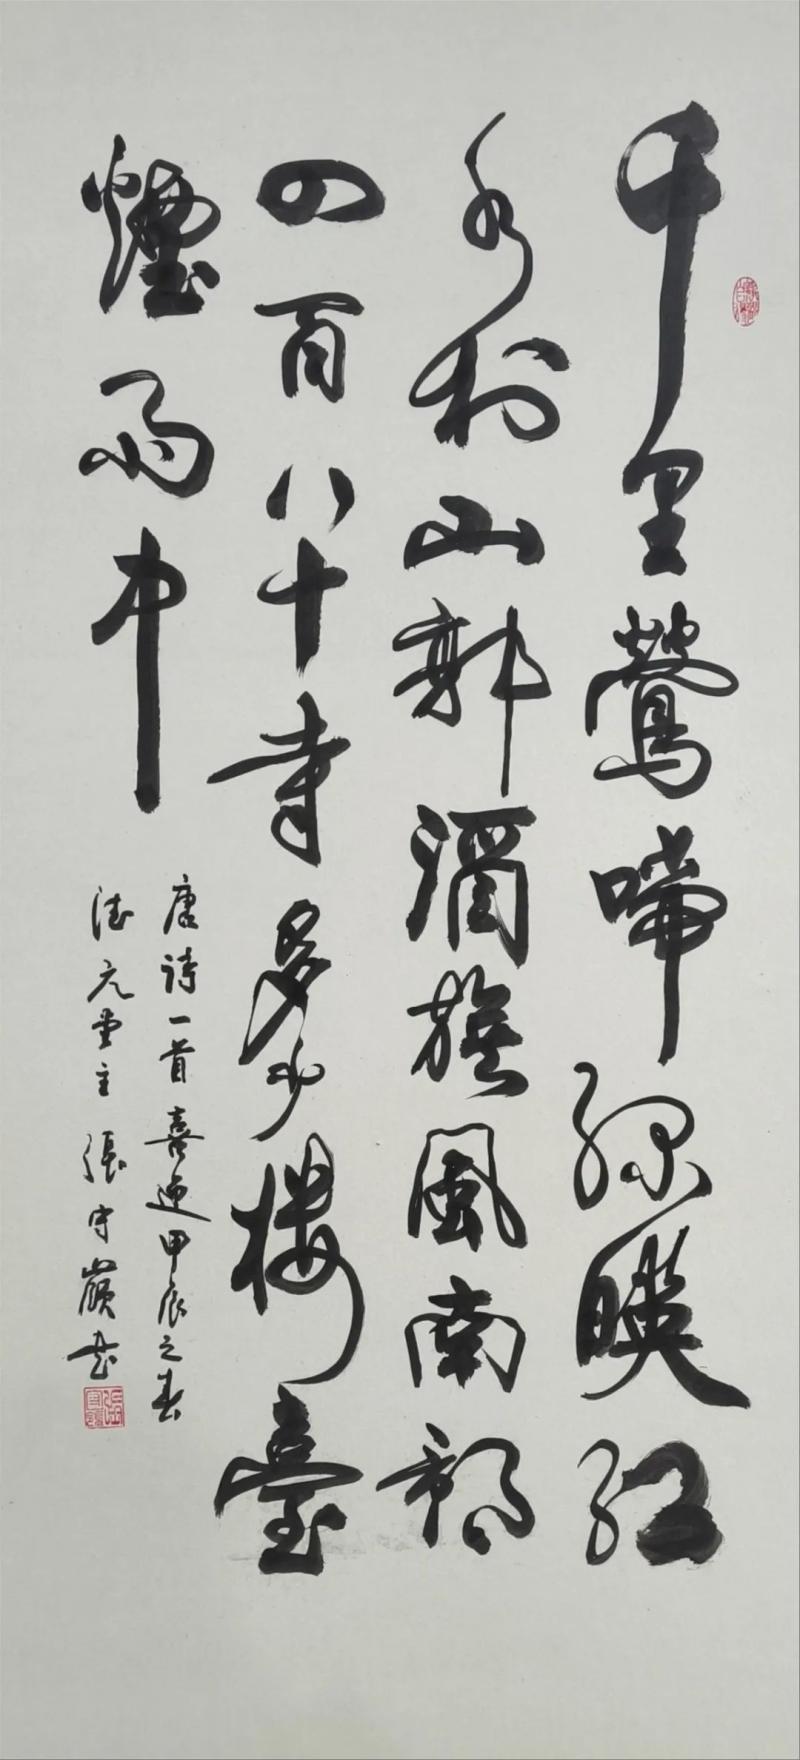 千里鶯啼綠暎紅
水村山郭酒旗風南朝
四百八十寺多少樓臺
煙雨中
唐詩一首喜迎甲辰之春
德元堂主張守嶺书